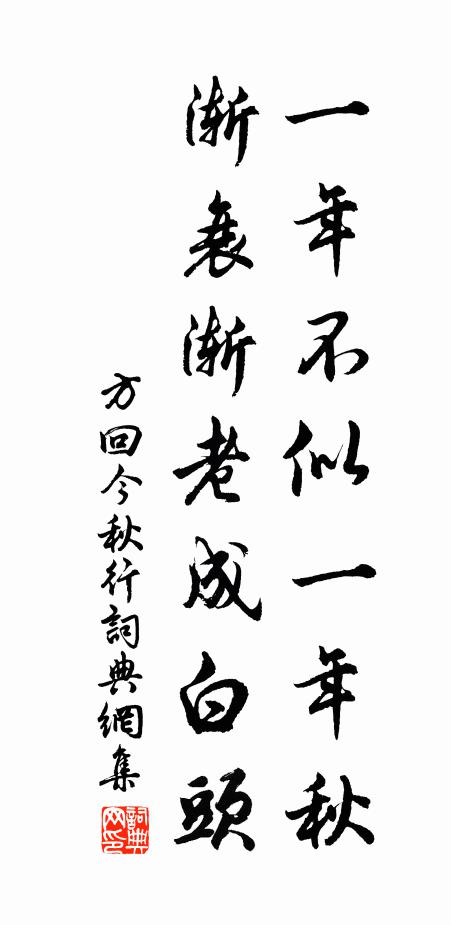 一年不似一年秋
漸衰漸老成白頭
方回今秋行詞典網集
詞典網印